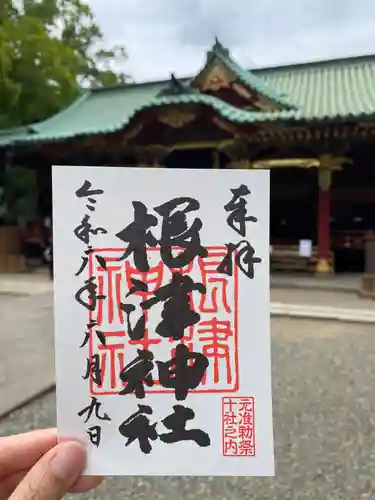 奉拝
根津神社
根津神社
元准勅祭
十社之内
令和六年六月九日